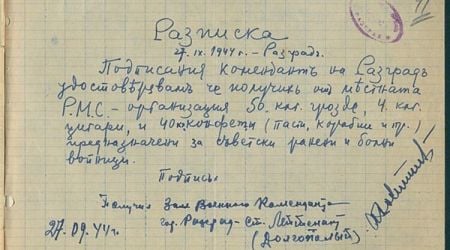 Разписка
27.IX.1944 г. - Разградъ.
Подписания комендантъ на Разградъ
удостовѣрявамъ че получихъ от мѣстната
Р.М.С. - организация 50 клг. грозде, 4 клг.
цигари, и 40 клг. конфети (пасти, корабии и пр.)
предназначени за съветски ранени и болни
войници.
Подпись:
Получил Зам Военного Коменданта
гор. Разград - ст. Лейтенант
(Долгополый)
27.09.44 г.